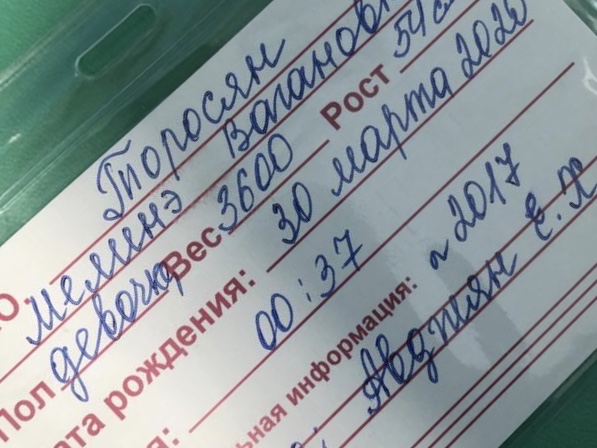 Торосян
О. Мелинэ Вагановн
Пол девочка Вес 3600 Рост 54 с
ата рождения: 30 марта 2020
я: 00:37
ьная информация: ~2017
Авджян Е. Х